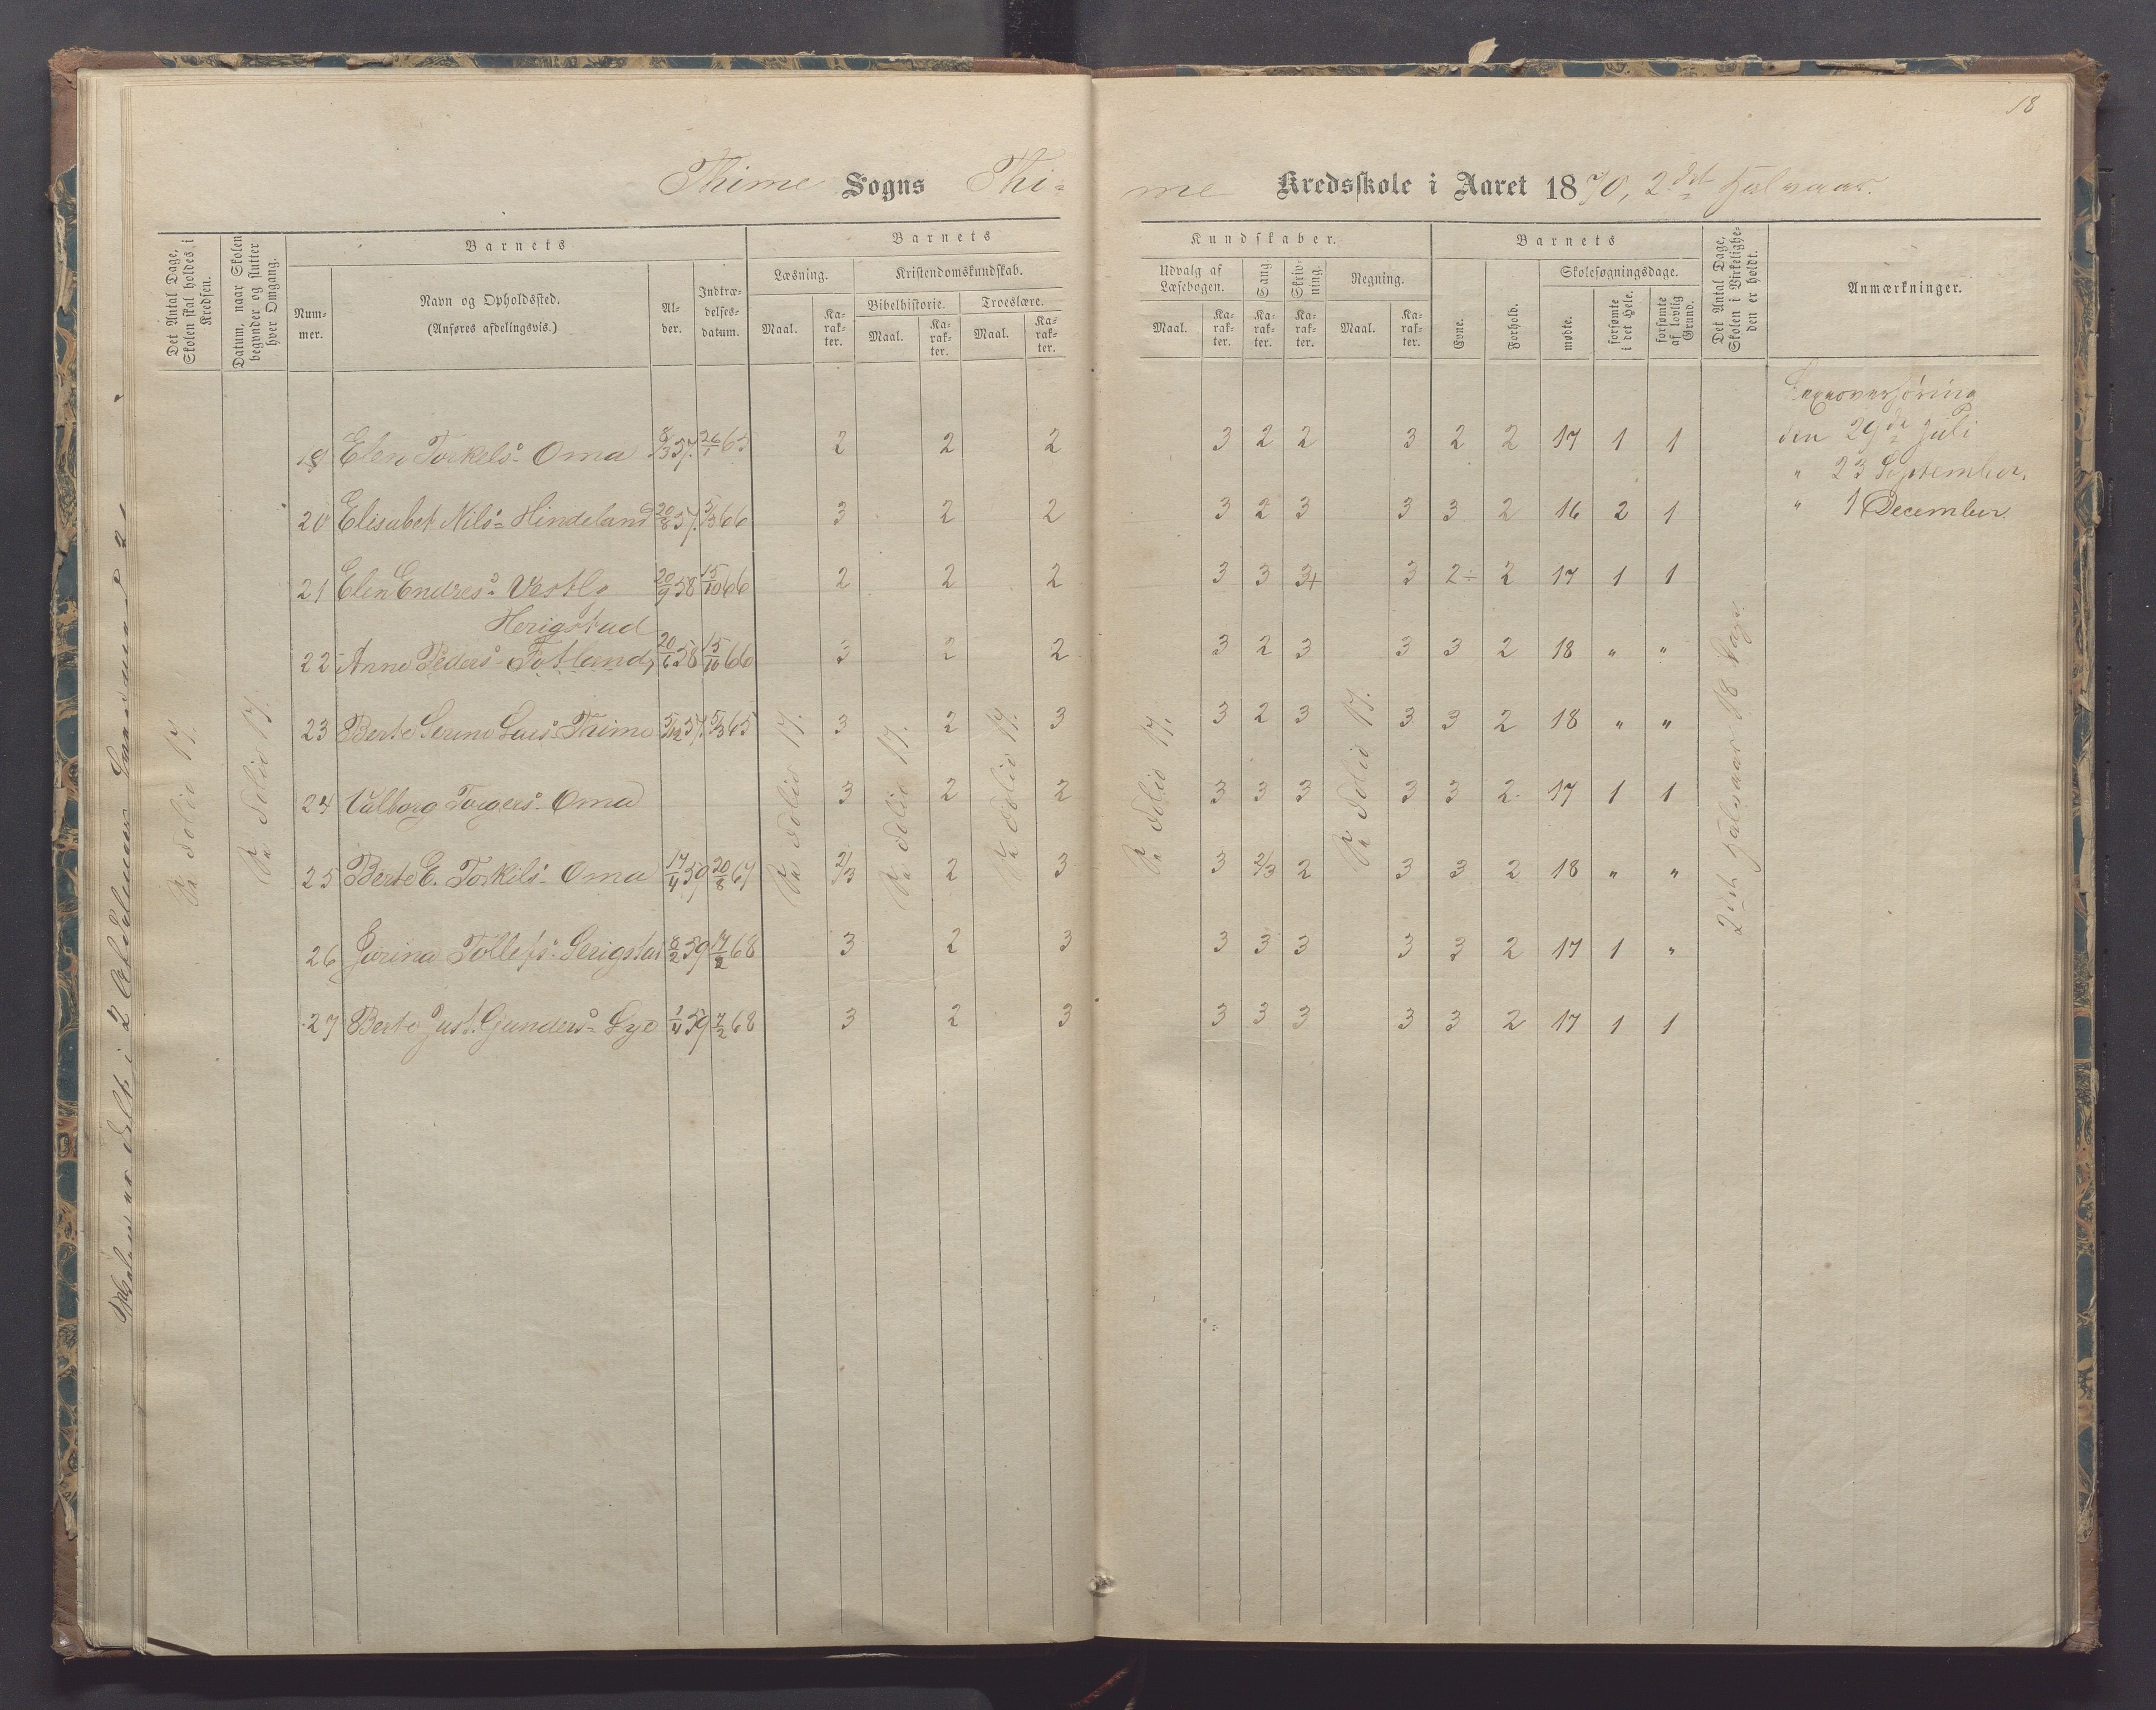 18
Thime Sogns Thi-
me Kredsskole i Aaret 1870, 2det Halvaar.
Det Antal Dage, Skolen skal holdes i Kredsen.
Datum, naar Skolen begynder og slutter hver Omgang.
Barnets
Nummer.
Navn og Opholdssted.
(Anføres afdelingsvis.)
Alder.
Indtrædelsesdatum.
Barnets
Læsning.
Maal.
Karakter.
Kristendomskundskab.
Bibelhistorie.
Maal.
Karakter.
Troeslære.
Maal.
Karakter.
Kundskaber.
Udvalg af Læsebogen.
Maal.
Karakter.
Sang.
Karakter.
Skrivning.
Karakter.
Regning.
Maal.
Karakter.
Barnets
Evne.
Forhold.
Skolesøgningsdage.
mødte.
forsømte i det Hele.
forsømte af lovlig Grund.
Det Antal Dage, Skolen i Virkeligheden er holdt.
Anmærkninger.
19 Elen Torkels- Oma 8/3 57. 26/1 65 2 2 2 3 2 2 3 2 2 17 1 1
20 Elisabet Nils- Hindeland 20/8 57. 5/3 66 3 2 2 3 2 3 3 3 2 16 2 1
21 Elen Endres- Vestly 20/9 58 15/10 66 2 2 2 3 3 3+ 3 2÷ 2 17 1 1
Herigstad
22 Anne Peders- Fotland, 20/6 58 15/10 66 3 2 2 3 2 3 3 3 2 18 " "
23 Berte Serine Lars- Thime 5/12 57. 5/3 65 3 2 3 3 2 3 3 3 2 18 " "
24 Valborg Torgers- Oma 3 2 2 3 3 3 3 3 2 17 1 1
25 Berte E. Torkils- Oma 14/4 59 20/8 67 2/3 2 3 3 2/3 2 3 3 2 18 " "
26 Jorina Tollefs- Serigstad 8/2 59 17/2 68 3 2 3 3 3 3 3 3 2 17 1 "
27 Berte Just. Gunders- Lye 1/4 59 7/2 68 3 2 3 3 3 3 3 3 2 17 1 1
Pa Folio 17.
Pa Folio 17.
Pa Folio 17.
Pa Folio 17.
Pa Folio 17.
Pa Folio 17.
Pa Folio 17.
2det Halvaar 18 Dage.
den 29de Juli
" 23 September.
" 1 December.